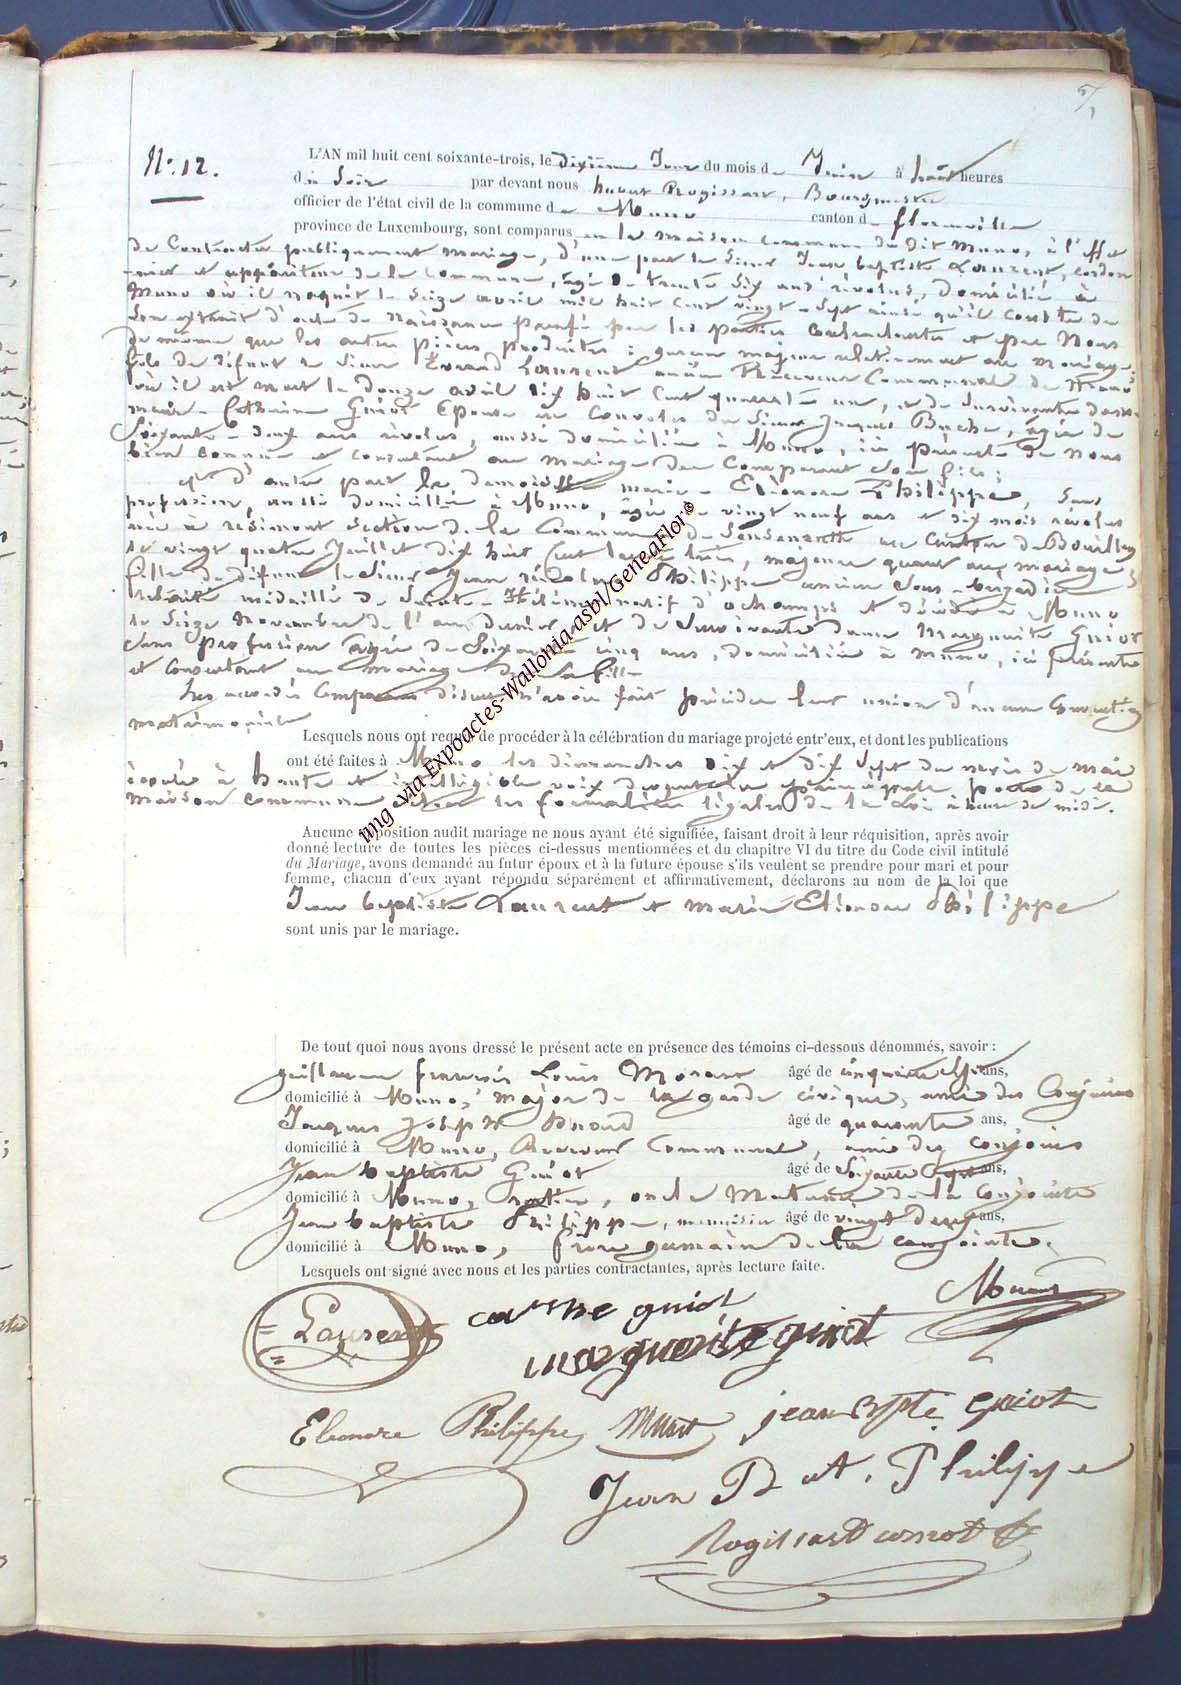 N°. 12.
L'AN mil huit cent soixante-trois, le dixième Jour du mois de Juin à huit heures
du Soir par devant nous hubert Rogissart, Bourgmestre
officier de l'état civil de la commune de Muno canton de florenville
province de Luxembourg, sont comparus en la maison commune du dit Muno, à l'effet
de Contracter publiquement mariage, d'une part le Sieur Jean baptiste Laurent, cordon
-nier et appariteur de la Commune, âgé de trente six ans révolus, Domicilié à
Muno où il naquit le Seize avril mil huit Cent vingt-Sept ainsi qu'il Conste de
Son extrait d'acte de Naissance paraphé par les parties Contractantes et par Nous
de même que les autres pièces produites; majeur relativement au mariage
fils de défunt le Sieur Laurent Receveur Communal de Muno
où il est mort le Douze avril Dix huit Cent quarante un, et de Survivante dame
marie-Catherine Guiot Epouse en Convoles du Sieur Jacques âgée de
Soixante-deux ans révolus, aussi domiciliée à Muno, ici présente de nous
bien connue et consentant au mariage du Comparant Son fils;
et d'autre part la demoiselle marie-Eléonore Philippe, Sans
profession, aussi domiciliée à Muno, âgée de vingt neuf ans et dix mois révolus
née à section de la Commune de Sensenruth au Canton de Bouillon
le vingt quatre Juillet dix huit Cent trente trois, majeure quant au mariage,
fille de défunt le Sieur Jean Philippe ancien Sous-brigadier
retraité médaillé de Sainte-Hélène natif d'ochamps et décédé à Muno
le Seize Novembre de l'an dernier, et de Survivante dame Marguerite Guiot
Sans profession âgée de Soixante cinq ans, domiciliée à Muno, ici présente
et consentant au mariage de Sa fille
Les Comparans n'avoir fait précéder leur union d'aucune Convention
matrimoniale
Lesquels nous ont requis de procéder à la célébration du mariage projeté entr'eux, et dont les publications
ont été faites à Muno les dimanches dix et dix Sept du mois de mai
à haute et intelligible voix devant la principale porte de la
maison commune les formalités légales de la loi à heure de midi.
Aucune opposition audit mariage ne nous ayant été signifiée, faisant droit à leur réquisition, après avoir
donné lecture de toutes les pièces ci-dessus mentionnées et du chapitre VI du titre du Code civil intitulé
du Mariage, avons demandé au futur époux et à la future épouse s'ils veulent se prendre pour mari et pour
femme, chacun d'eux ayant répondu séparément et affirmativement, déclarons au nom de la loi que
Jean baptiste Laurent et marie Eléonore Philippe
sont unis par le mariage.
De tout quoi nous avons dressé le présent acte en présence des témoins ci-dessous dénommés, savoir :
guillaume françois Louis âgé de cinquante ans,
domicilié à Muno, major de la garde civique, ami des Conjoints
Jacques Joseph âgé de quarante ans,
domicilié à Muno, Receveur Communal, ami des conjoints
Jean baptiste Guiot âgé de Soixante ans,
domicilié à Muno, rentier, oncle Maternel de la conjointe
Jean baptiste Philippe, menuisier âgé de vingt deux ans,
domicilié à Muno, frère germain de la conjointe.
Lesquels ont signé avec nous et les parties contractantes, après lecture faite.
Laurent
guiot
marguerite guiot
Eleonore Philippe
jean Bpte guiot
Jean Bat. Philippe
Rogissart
img via Expoactes-Wallonia-asbl/GeneaFlor®